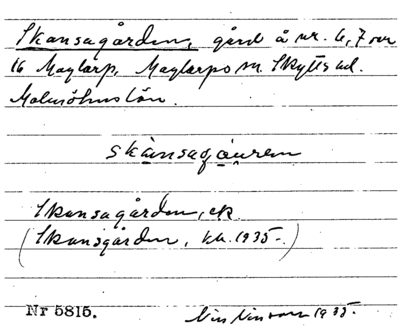 Skansagården, gård å nr. 6, 7 och
16 Maglarp, Maglarps sn. Skytts hd.
Malmöhus län.
skånsagåuren
Skansagården, ek
(Skansgården, kk. 1935.)
Nr 5815. 1935.